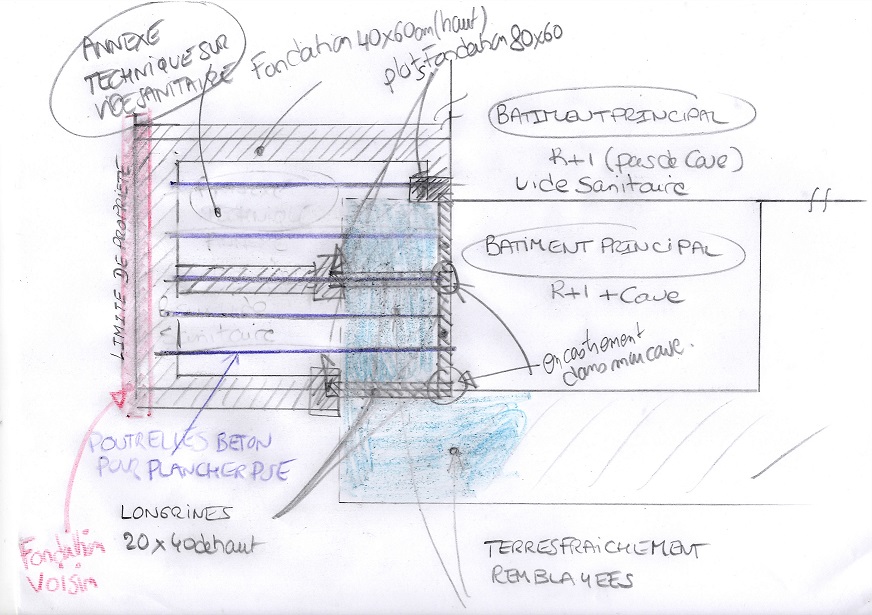 ANNEXE
TECHNIQUE SUR
VIDE SANITAIRE
Fondation 40x60cm (haut)
plots Fondation 80x60
BATIMENT PRINCIPAL
R+1 (pas de Cave)
vide sanitaire
BATIMENT PRINCIPAL
R+1 + Cave
LIMITE DE PROPRIÉTÉ
sanitaire
encastrement
dans mur cave.
POUTRELLES BETON
POUR PLANCHER PSE
LONGRINES
20 x 40 de haut
Fondation
voisin
TERRES FRAICHEMENT
REMBLAYEES